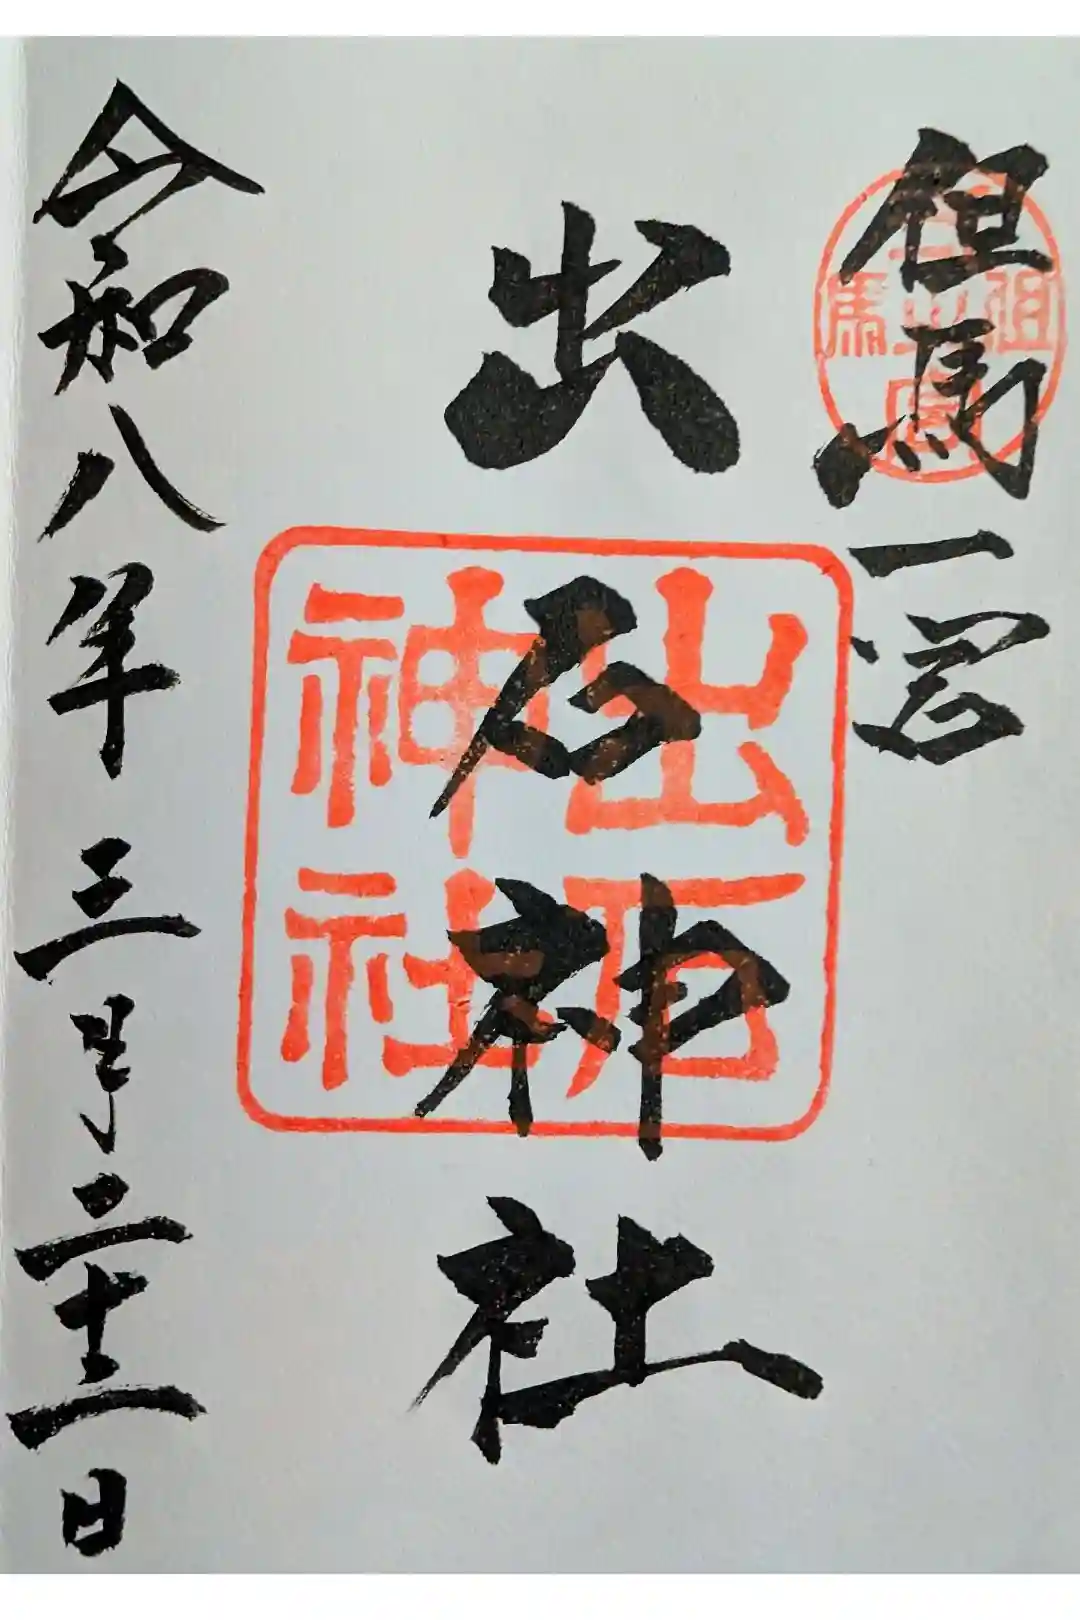 但馬一宮
但馬一之宮
出石神社
出石
神社
令和八年三月二十二日